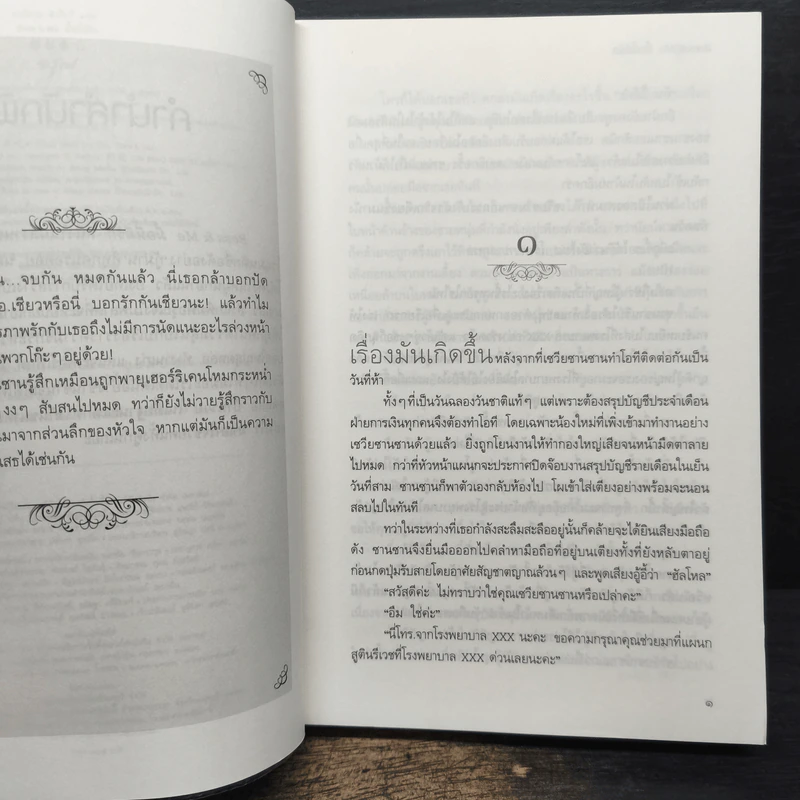 น...จบกัน หมดกันแล้ว นี่เธอกล้าบอกปัด
อ.เชียวหรือนี่ บอกรักกันเชียวนะ! แล้วทำไม
รภาพรักกับเธอถึงไม่มีการนัดแนะอะไรล่วงหน้า
พวกโก๊ะๆอยู่ด้วย!
ซานรู้สึกเหมือนถูกพายุเฮอร์ริเคนโหมกระหน่ำ
งงๆ สับสนไปหมด ทว่าก็ยังไม่วายรู้สึกราวกับ
นมาจากส่วนลึกของหัวใจ หากแต่มันก็เป็นความ
เสธได้เช่นกัน
๑
เรื่องมันเกิดขึ้น หลังจากที่เซวียซานซานทำโอทีติดต่อกันเป็น
วันที่ห้า
ทั้งๆที่เป็นวันฉลองวันชาติแท้ๆ แต่เพราะต้องสรุปบัญชีประจำเดือน
ฝ่ายการเงินทุกคนจึงต้องทำโอที โดยเฉพาะน้องใหม่ที่เพิ่งเข้ามาทำงานอย่าง
เซวียซานซานด้วยแล้ว ยิ่งถูกโยนงานให้ทำกองใหญ่เสียจนหน้ามืดตาลาย
ไปหมด กว่าที่หัวหน้าแผนกจะประกาศปิดจ๊อบงานสรุปบัญชีรายเดือนในเย็น
วันที่สาม ซานซานก็พาตัวเองกลับห้องไป โผเข้าใส่เตียงอย่างพร้อมจะนอน
สลบไปในทันที
ทว่าในระหว่างที่เธอกำลังสะลึมสะลืออยู่นั้นก็คล้ายจะได้ยินเสียงมือถือ
ดัง ซานซานจึงยื่นมือออกไปคลำหามือถือที่อยู่บนเตียงทั้งที่ยังหลับตาอยู่
ก่อนกดปุ่มรับสายโดยอาศัยสัญชาตญาณล้วนๆ และพูดเสียงอู้อี้ว่า “ฮัลโหล”
“สวัสดีค่ะ ไม่ทราบว่าใช่คุณเซวียซานซานหรือเปล่าคะ”
“อืม ใช่ค่ะ”
“นี่โทร.จากโรงพยาบาล XXX นะคะ ขอความกรุณาคุณช่วยมาที่แผนก
สูตินรีเวชที่โรงพยาบาล XXX ด่วนเลยนะคะ”
๑